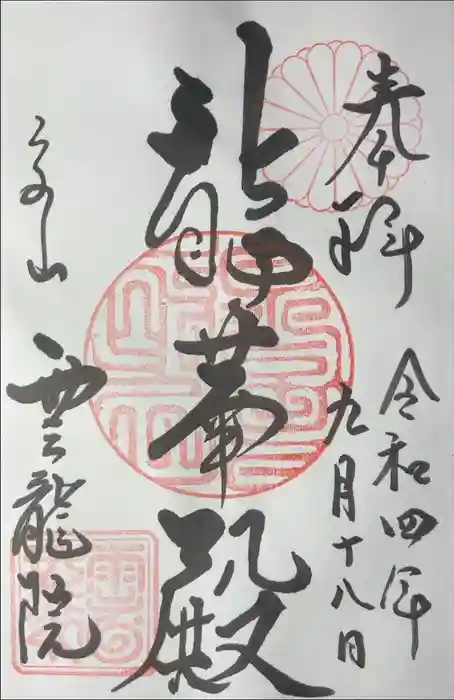 奉拝
令和四年
九月十八日
龍華殿
泉山
雲龍院